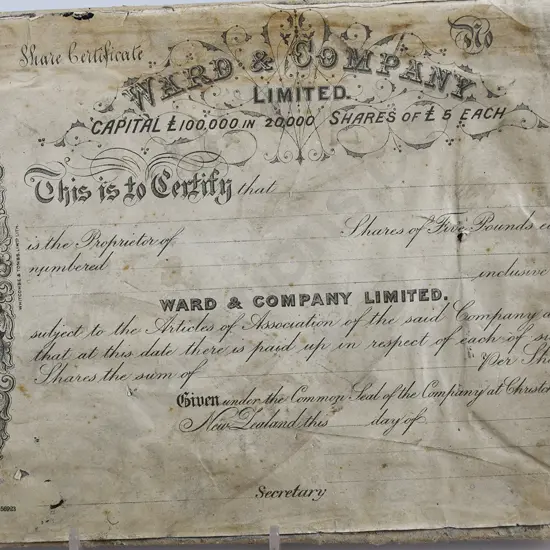 Share Certificate
No
WARD & COMPANY
LIMITED.
CAPITAL £100,000 IN 20,000 SHARES OF £5 EACH
This is to Certify that
is the Proprietor of Shares of Five Pounds e
numbered inclusive
WARD & COMPANY LIMITED.
subject to the Articles of Association of the said Company a
that at this date there is paid up in respect of each of su
Shares the sum of per Sha
Given under the Common Seal of the Company at Christc
New Zealand this day of
Secretary
WHITCOMBE & TOMBS, LIMITED